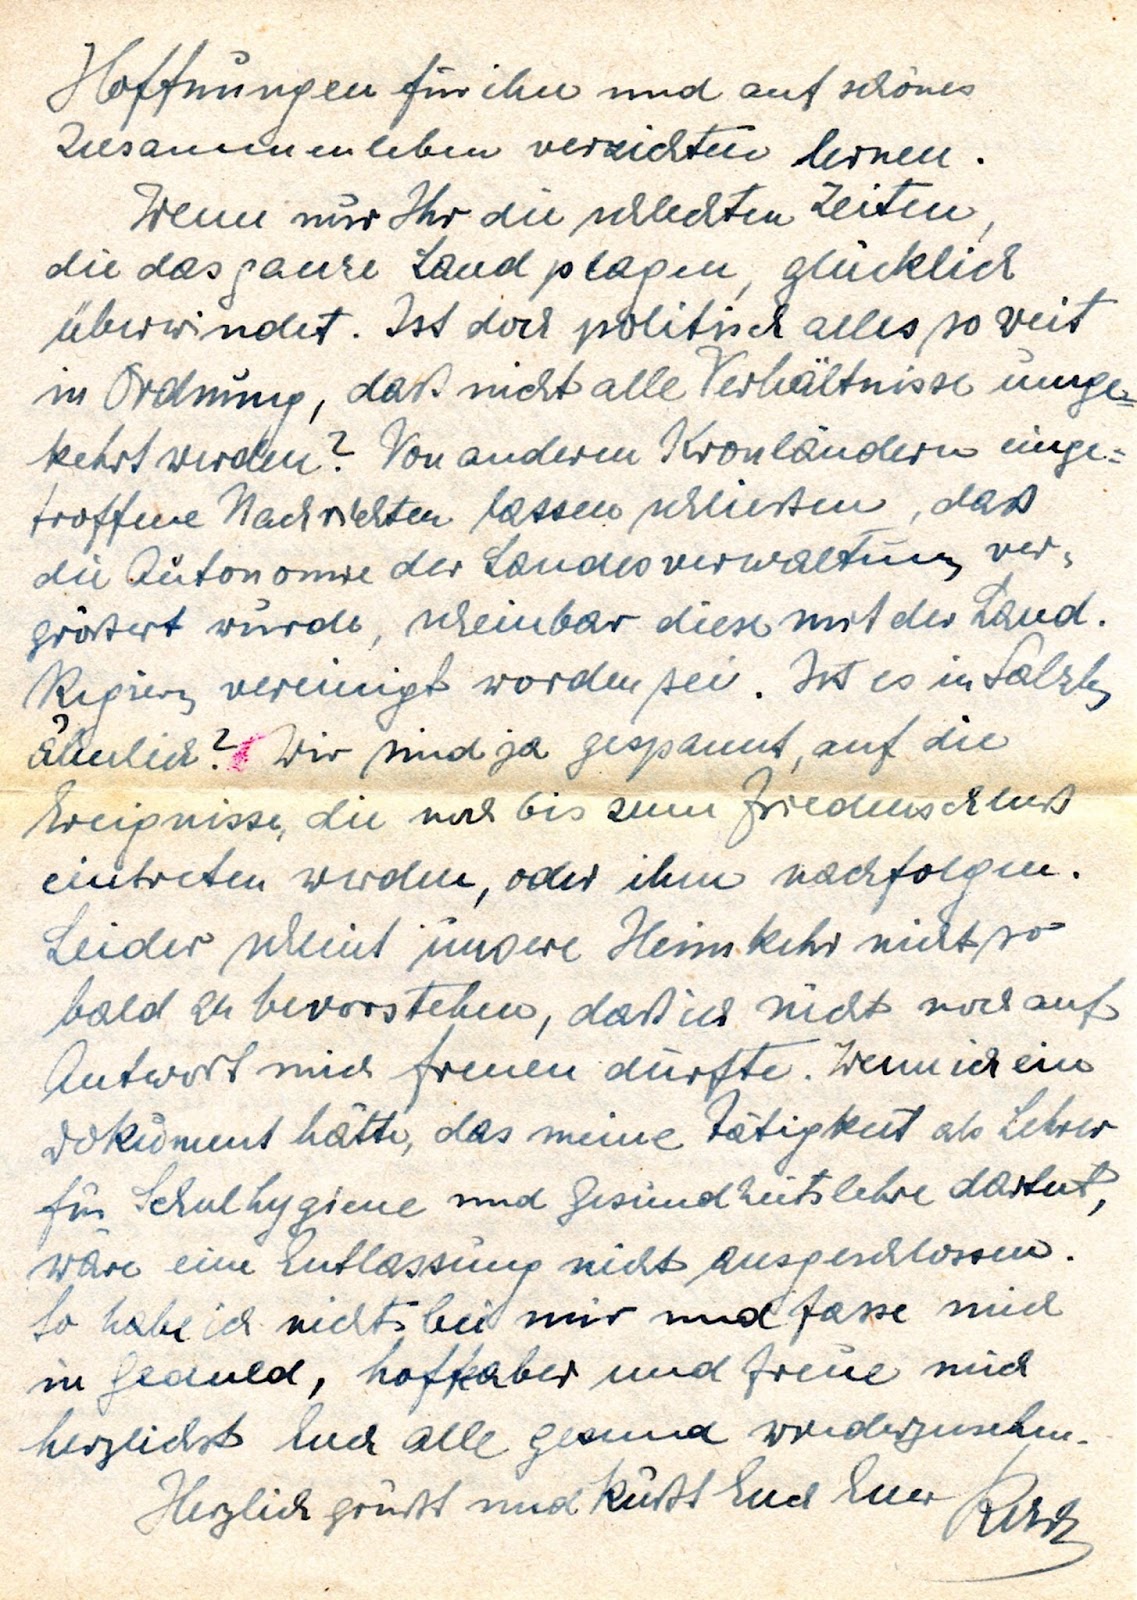 Hoffnungen für ihn und auf schönes
Zusammenleben verzichten lernen.
Wenn nur Ihr die schlechten Zeiten,
die das ganze Land plagen, glücklich
überwindet. Ist doch politisch alles so weit
in Ordnung, daß nicht alle Verhältnisse umge=
kehrt werden? Von anderen Kronländern einge=
troffene Nachrichten lassen schließen, daß
die Autonomie der Landesverwaltung ver=
größert wurde, scheinbar diese mit der Land.
Regierg vereinigt worden sei. Ist es in Salzbg
ähnlich? Wir sind ja gespannt, auf die
Ereignisse, die noch bis zum Friedensschluß
eintreten werden, oder ihm nachfolgen.
Leider scheint unsere Heimkehr nicht so
bald zu bevorstehen, daß ich nicht noch auf
Antwort mich freuen dürfte. Wenn ich ein
Dokument hätte, das meine Tätigkeit als Lehrer
für Schulhygiene und Gesundheitslehre dartut,
wäre eine Entlassung nicht ausgeschlossen.
So habe ich nichts bei mir und fasse mich
in Geduld, hoffe aber und freue mich
herzlichst Euch alle gesund wiederzusehen.
Herzlich grüßt und küßt Euch Euer